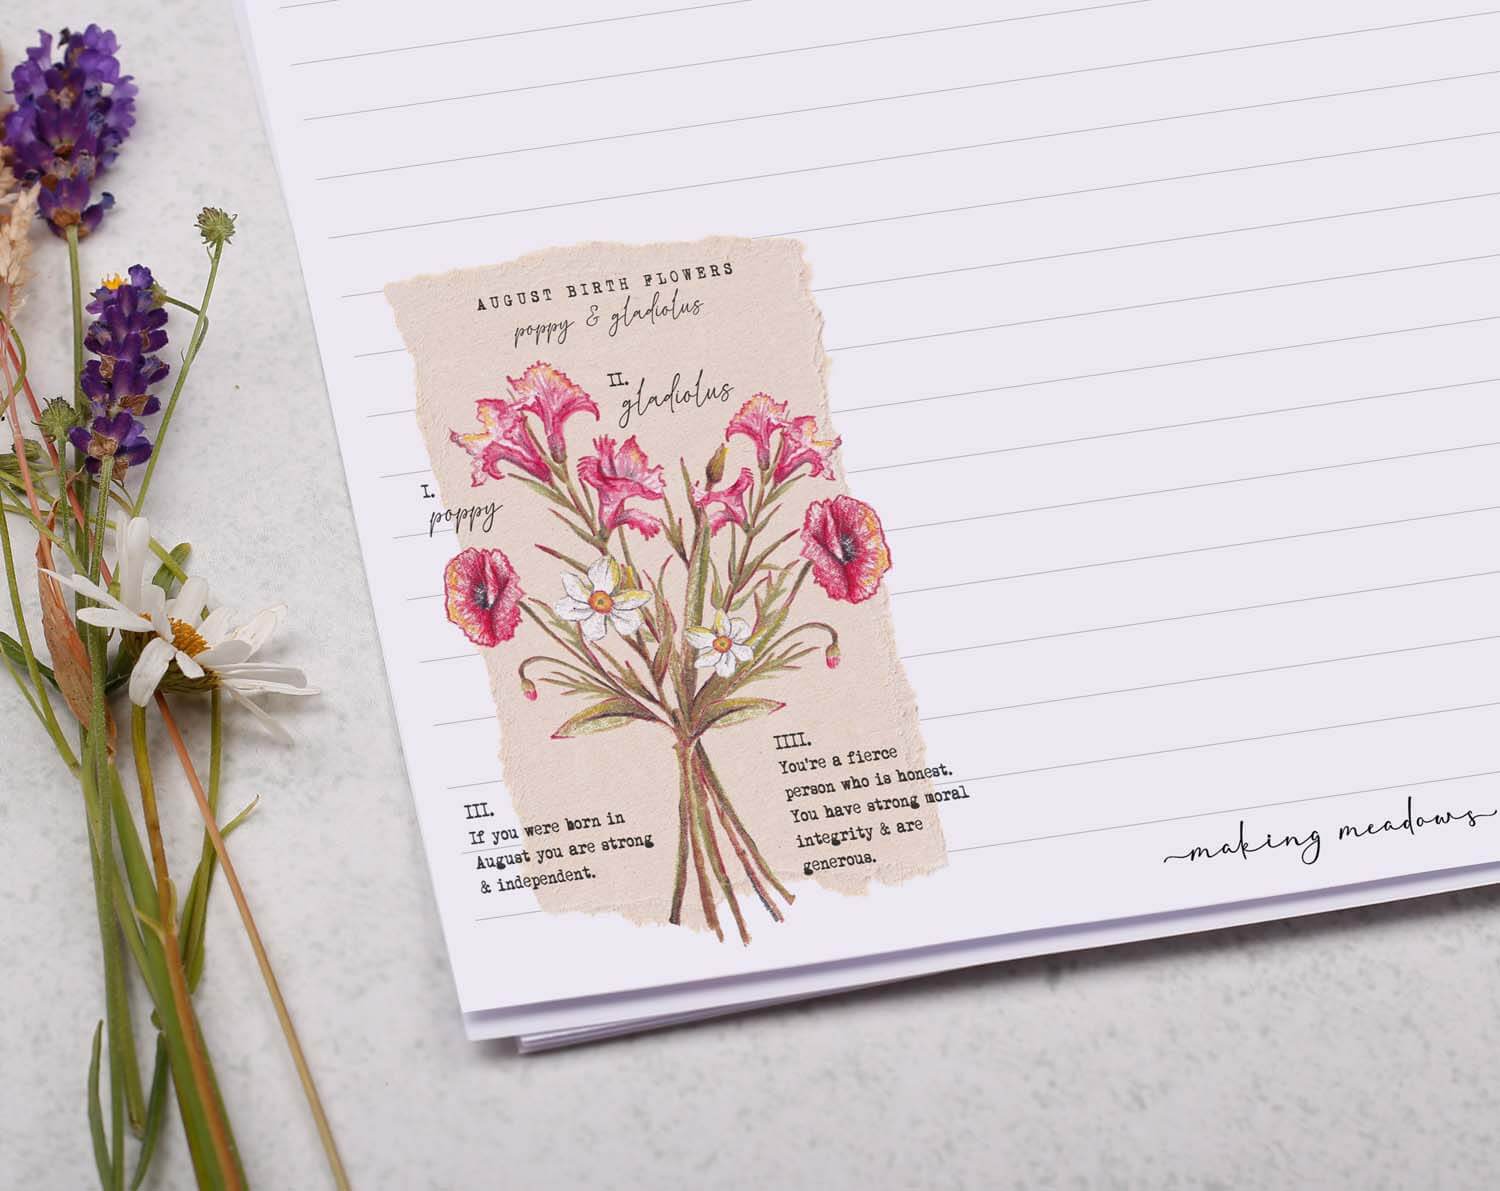 AUGUST BIRTH FLOWERS
poppy & gladiolus
II.
gladiolus
I.
poppy
III.
If you were born in
August you are strong
& independent.
IIII.
You're a fierce
person who is honest.
You have strong moral
integrity & are
generous.
making meadows